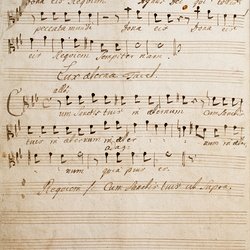 dona eis Requiem Agnus Dei qui tollis
peccata mundi dona eis dona
eis Requiem sempiter nam.
Lux aeterna Tacet.
alli:
um Sanctis tuis in aeternum cum Sanctis
tuis in aeternum in aeter in aeter
num quia pius es.
Requiem / Cum Sanctis tuis ut Supra.